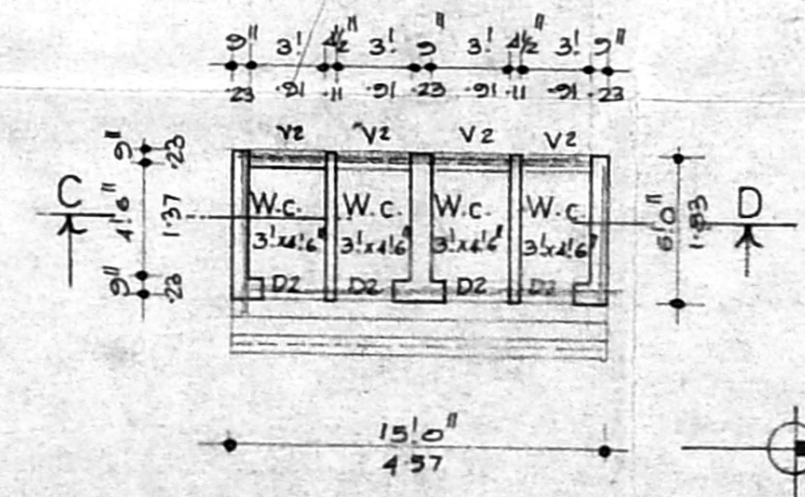 9" 3' 4½" 3' 9" 3' 4½" 3' 9"
.23 .91 .11 .91 .23 .91 .11 .91 .23
V2 V2 V2 V2
9" 4'6" 9"
.23 1.37 .23
C
W.c. W.c. W.c. W.c
3'x4'6" 3'x4'6" 3'x4'6" 3'x4'6"
D2 D2 D2 D2
6'0"
1.83
D
15'0"
4.57